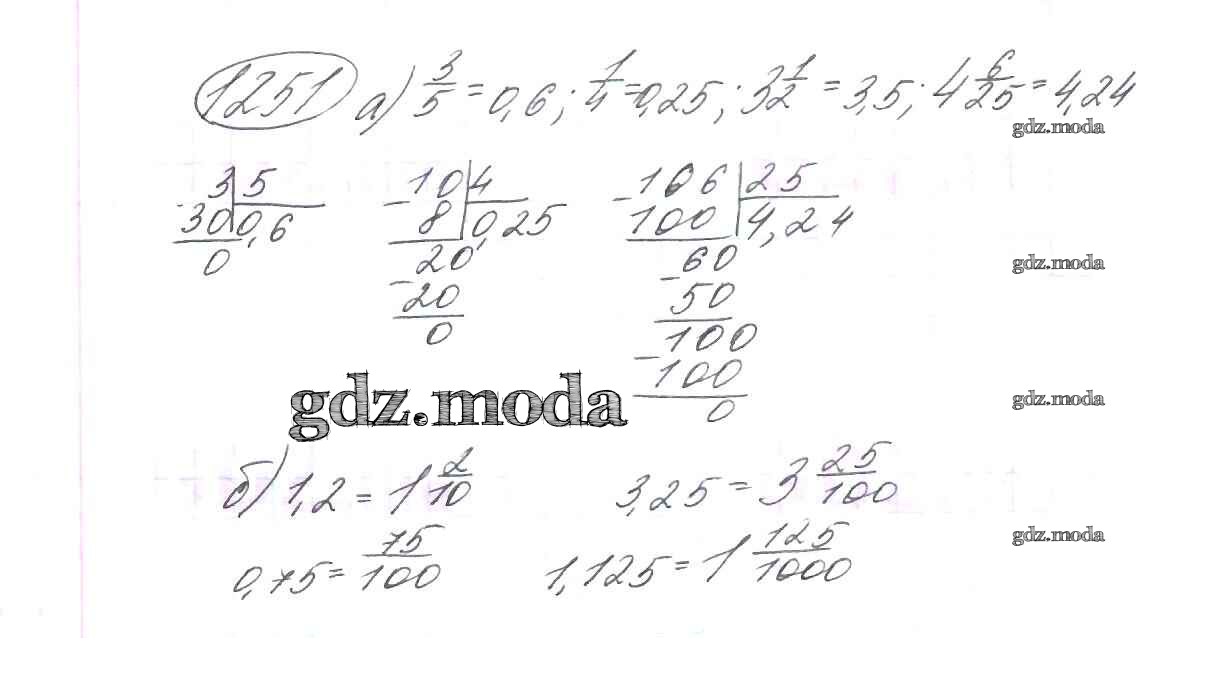 1251 а) 3/5 = 0,6; 1/4 = 0,25; 3 1/2 = 3,5; 4 6/25 = 4,24
gdz.moda
3 | 5 10 | 4 106 | 25
- 30 | 0,6 - 8 | 0,25 - 100 | 4,24
0 20 60
gdz.moda
- 20 - 50
0 100
- 100
0
gdz.moda
gdz.moda
б) 1,2 = 1 2/10 3,25 = 3 25/100
0,75 = 75/100 1,125 = 1 125/1000
gdz.moda